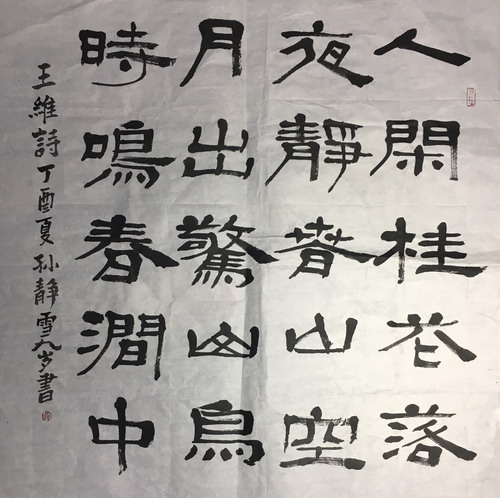 人閑桂花落
夜靜春山空
月出驚山鳥
時鳴春澗中
王維詩丁酉夏孙静雪九岁書